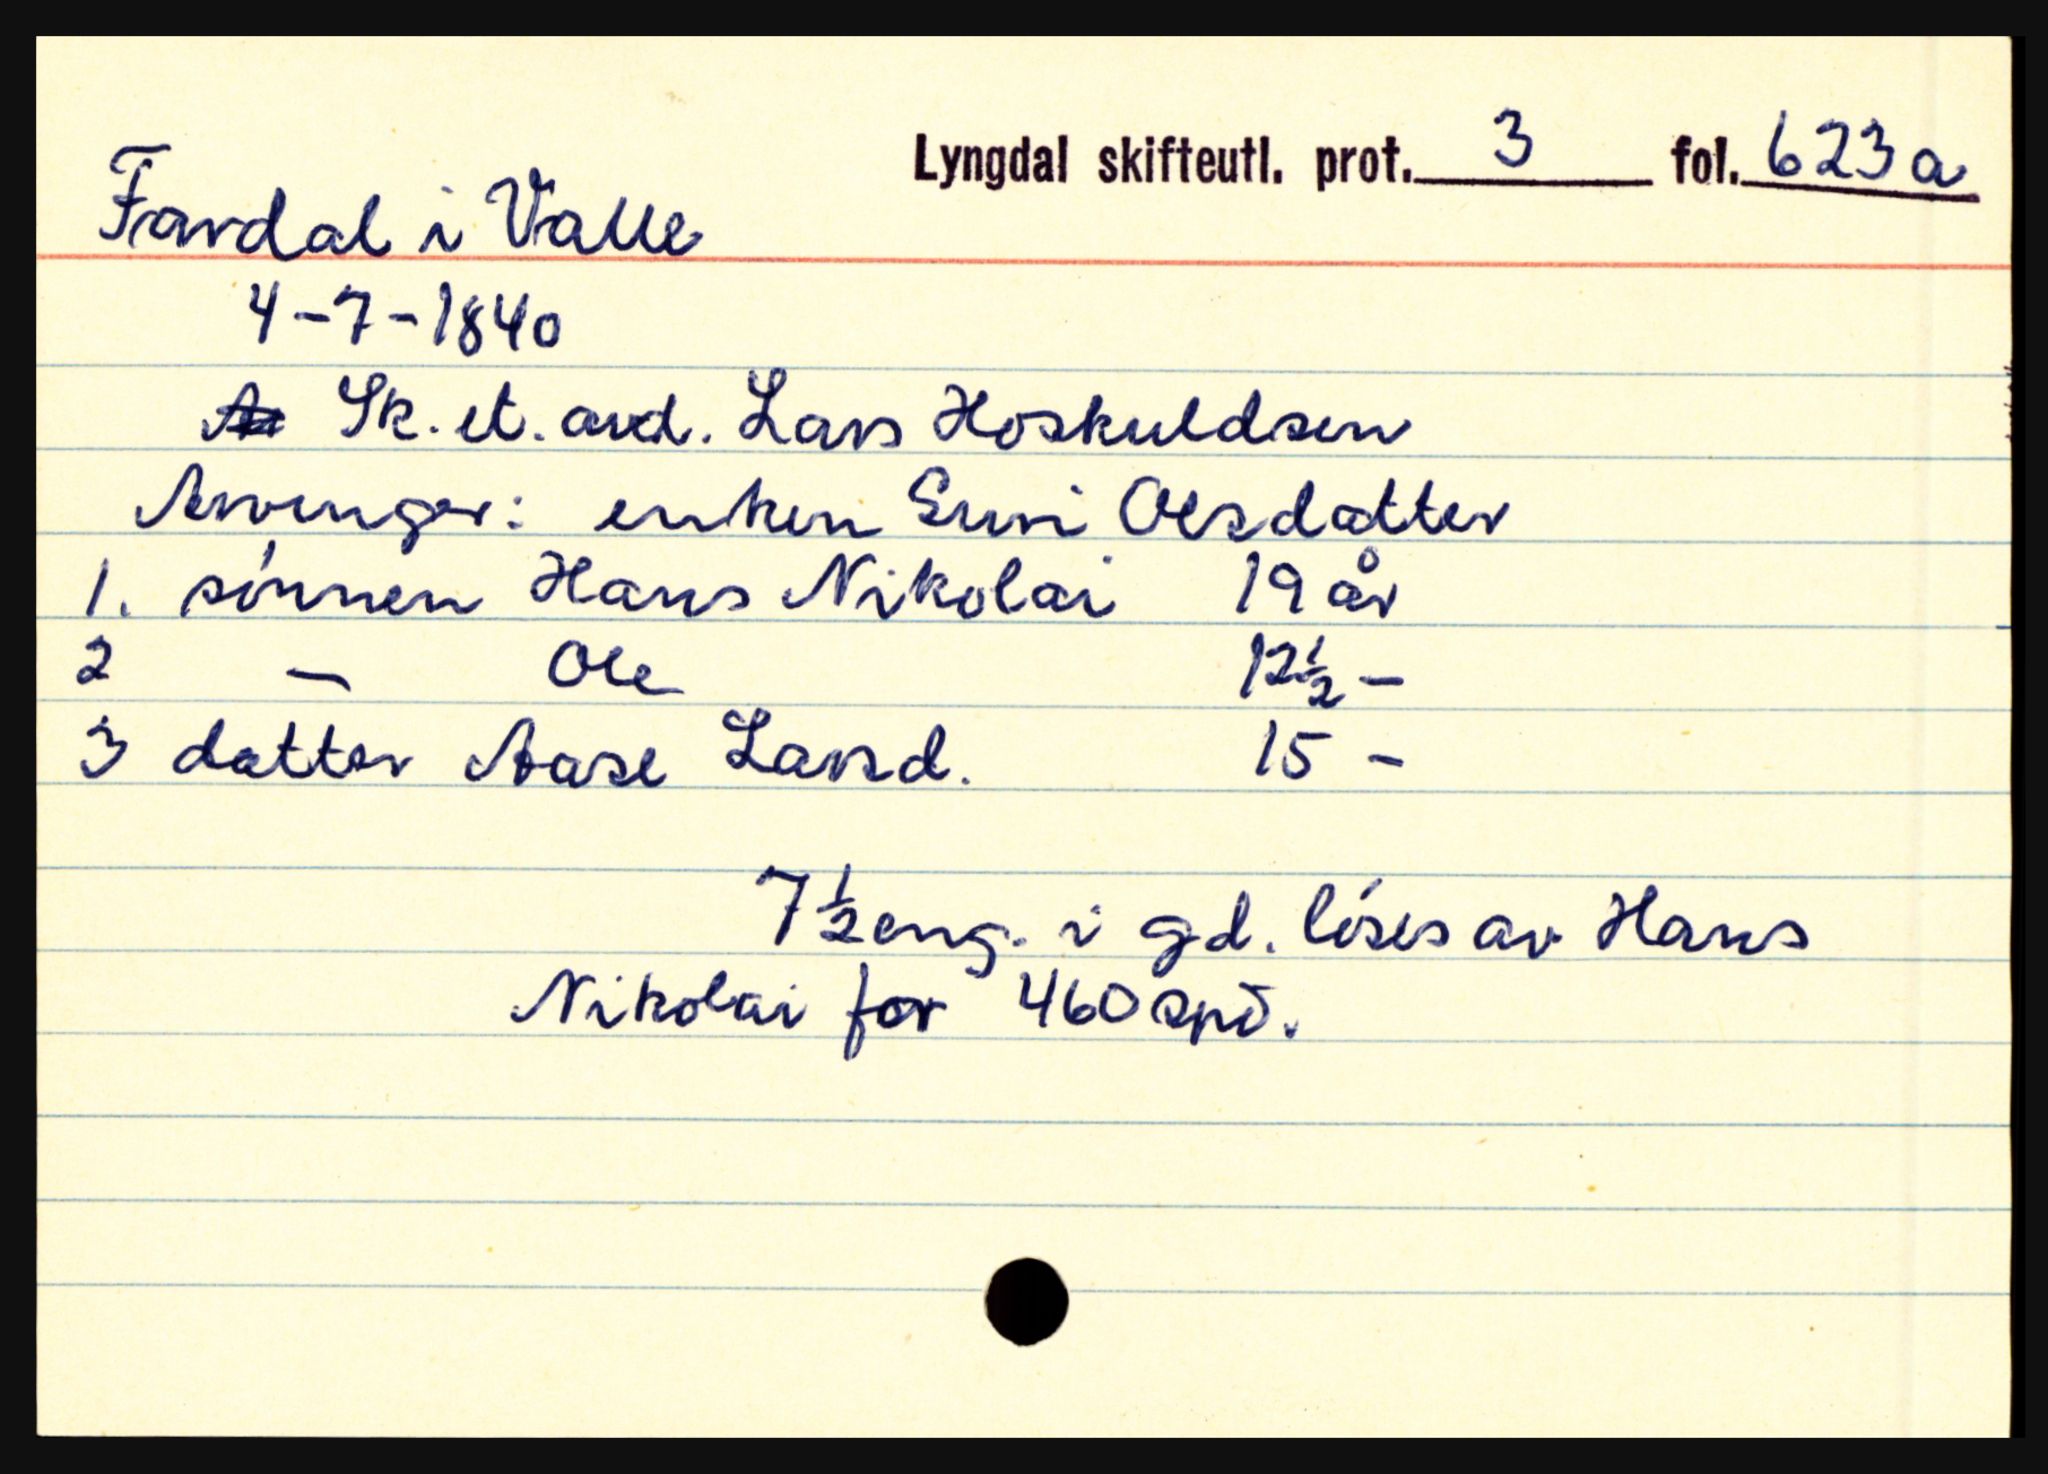 Lyngdal skifteutl. prot. 3 fol. 623a
Fardal i Valle
4-7-1840
Sk. et. avd. Lars Hoskuldsen
Arvinger: enken Siri Olsdatter
1. sónnen Hans Nikolai 19 år
2 — Ole 12½ —
3 datter Aase Larsd. 15 —
7½ eng. i gd. lóses av Hans
Nikolai for 460 spd.